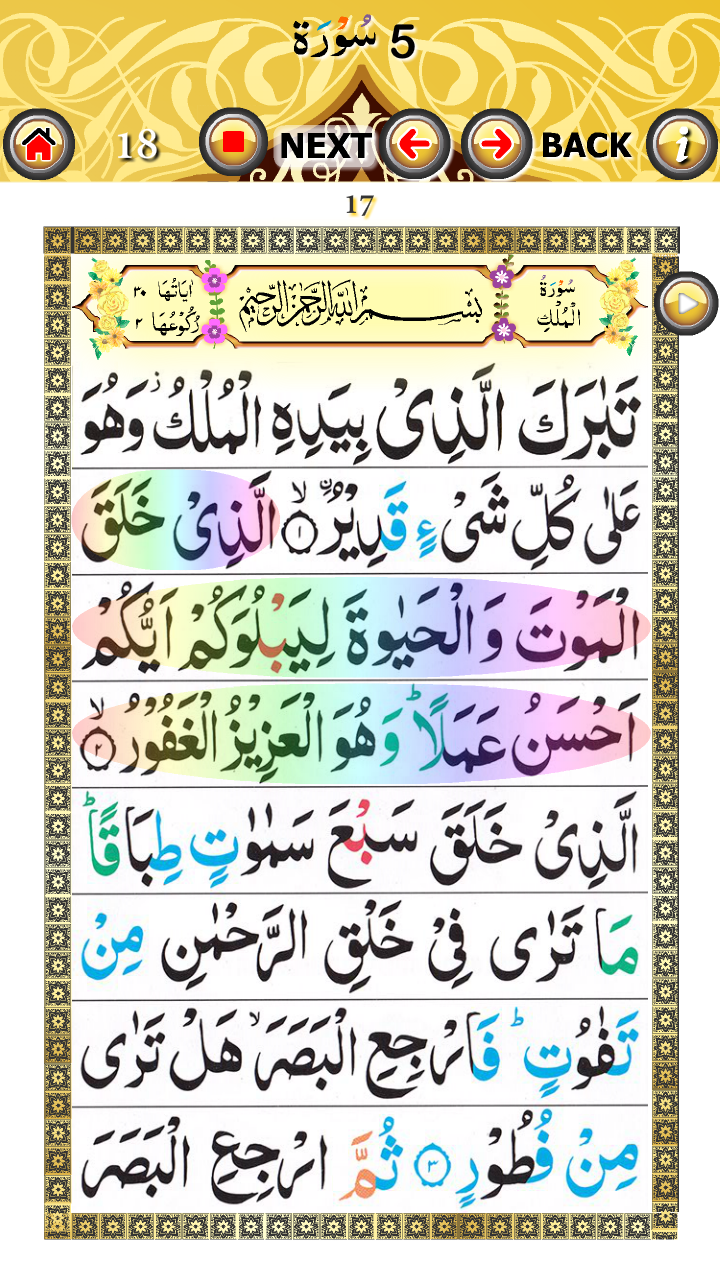 5 سُوْرَة
18 NEXT BACK i
17
سُوْرَةُ الْمُلْكِ
بِسْمِ اللّٰهِ الرَّحْمٰنِ الرَّحِيْمِ
اٰيَاتُهَا ٣٠
رُكُوْعُهَا ٢
تَبٰرَكَ الَّذِىْ بِيَدِهِ الْمُلْكُ ز وَهُوَ
عَلٰى كُلِّ شَىْءٍ قَدِيْرُ ۨ ۙ ١ الَّذِىْ خَلَقَ
الْمَوْتَ وَ الْحَيٰوةَ لِيَبْلُوَكُمْ اَيُّكُمْ
اَحْسَنُ عَمَلًا ؕ وَ هُوَ الْعَزِيْزُ الْغَفُوْرُ ۙ ٢
الَّذِىْ خَلَقَ سَبْعَ سَمٰوٰتٍ طِبَاقًا ؕ
مَا تَرٰى فِىْ خَلْقِ الرَّحْمٰنِ مِنْ
تَفٰوُتٍ ؕ فَارْجِعِ الْبَصَرَ ۙ هَلْ تَرٰى
مِنْ فُطُوْرٍ ٣ ثُمَّ ارْجِعِ الْبَصَرَ